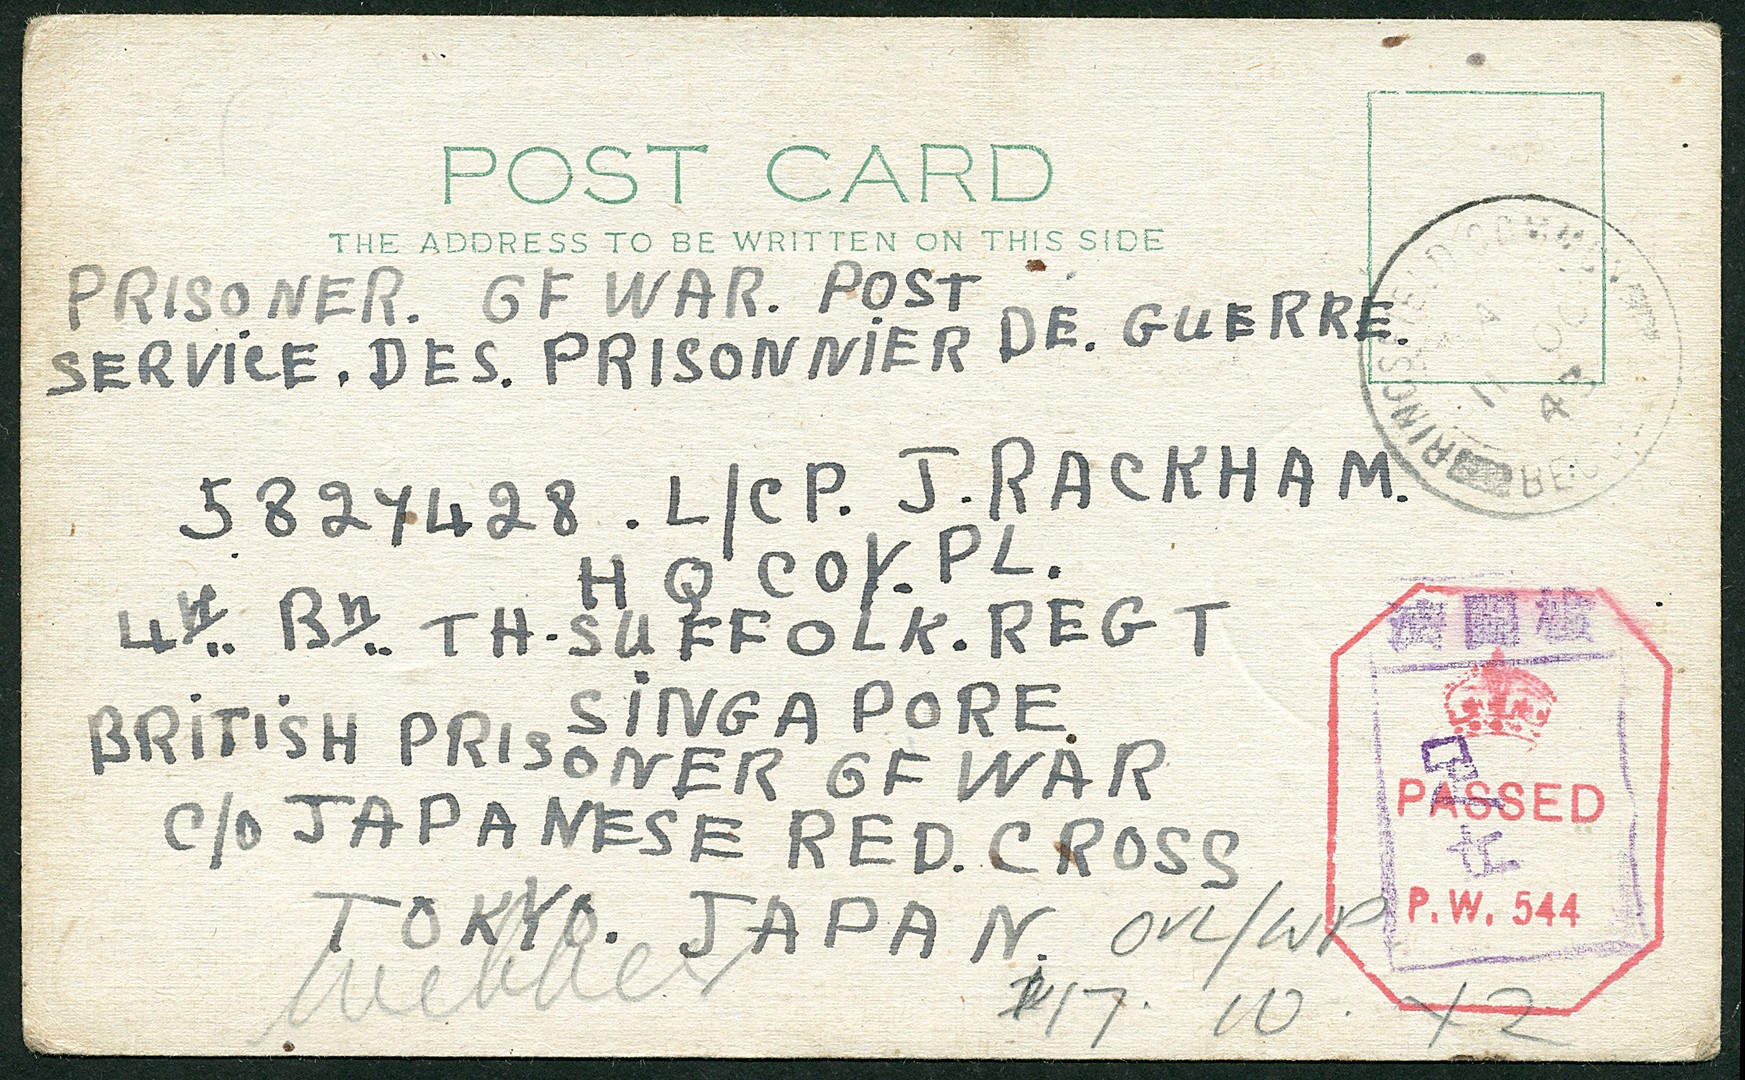 POST CARD
THE ADDRESS TO BE WRITTEN ON THIS SIDE
PRISONER. OF WAR. POST
SERVICE. DES. PRISONNIER DE. GUERRE.
5827428. L/CP. J. RACKHAM.
H Q COY. PL.
4th.. Bn.. TH. SUFFOLK. REGT
SINGAPORE.
BRITISH PRISONER OF WAR
C/O JAPANESE RED. CROSS
TOKYO. JAPAN.
17. 10. 42
PASSED
P.W. 544